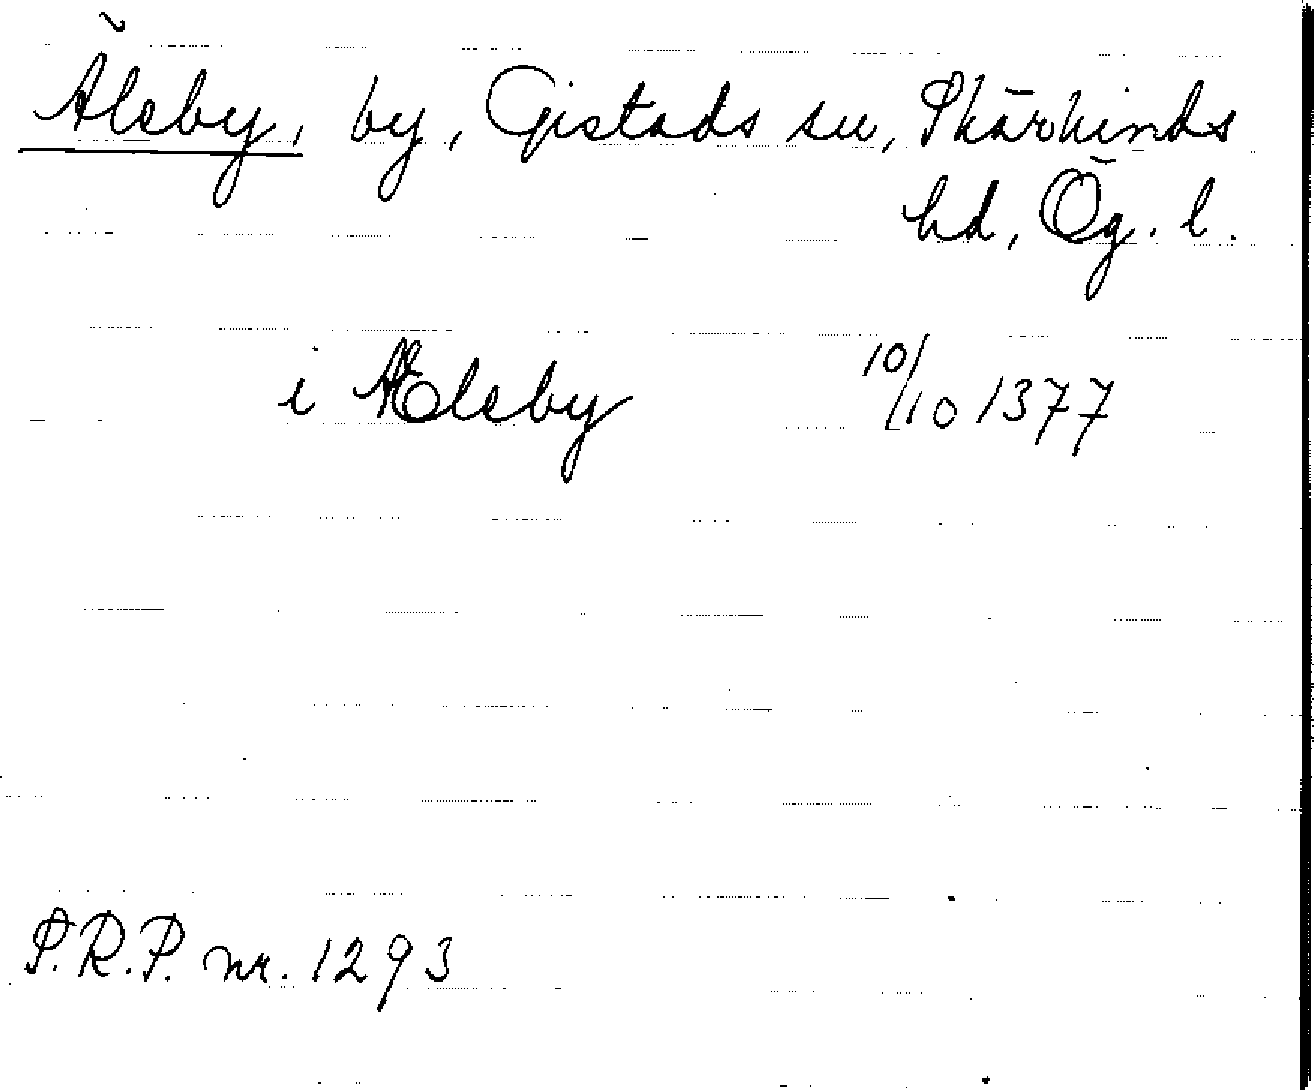 Älsby, by, Gistads sn, Skärkinds
hd, Ög. l.
i Ælsby 10/10 1377
S.R.P. nr. 1293